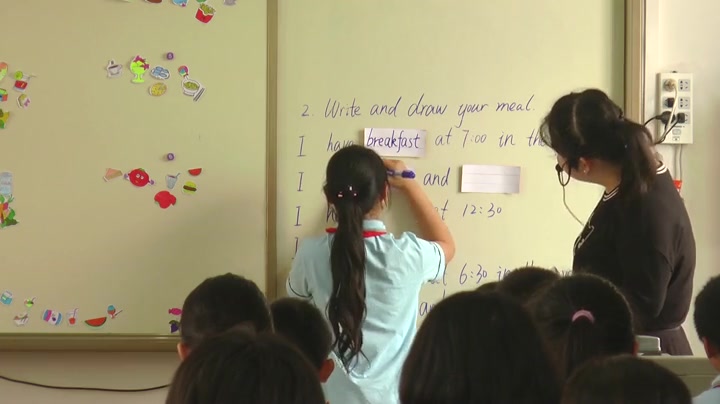 2. Write and draw your meal.
I have breakfast at 7:00 in the
I and
I at 12:30
I
at 6:30 in the